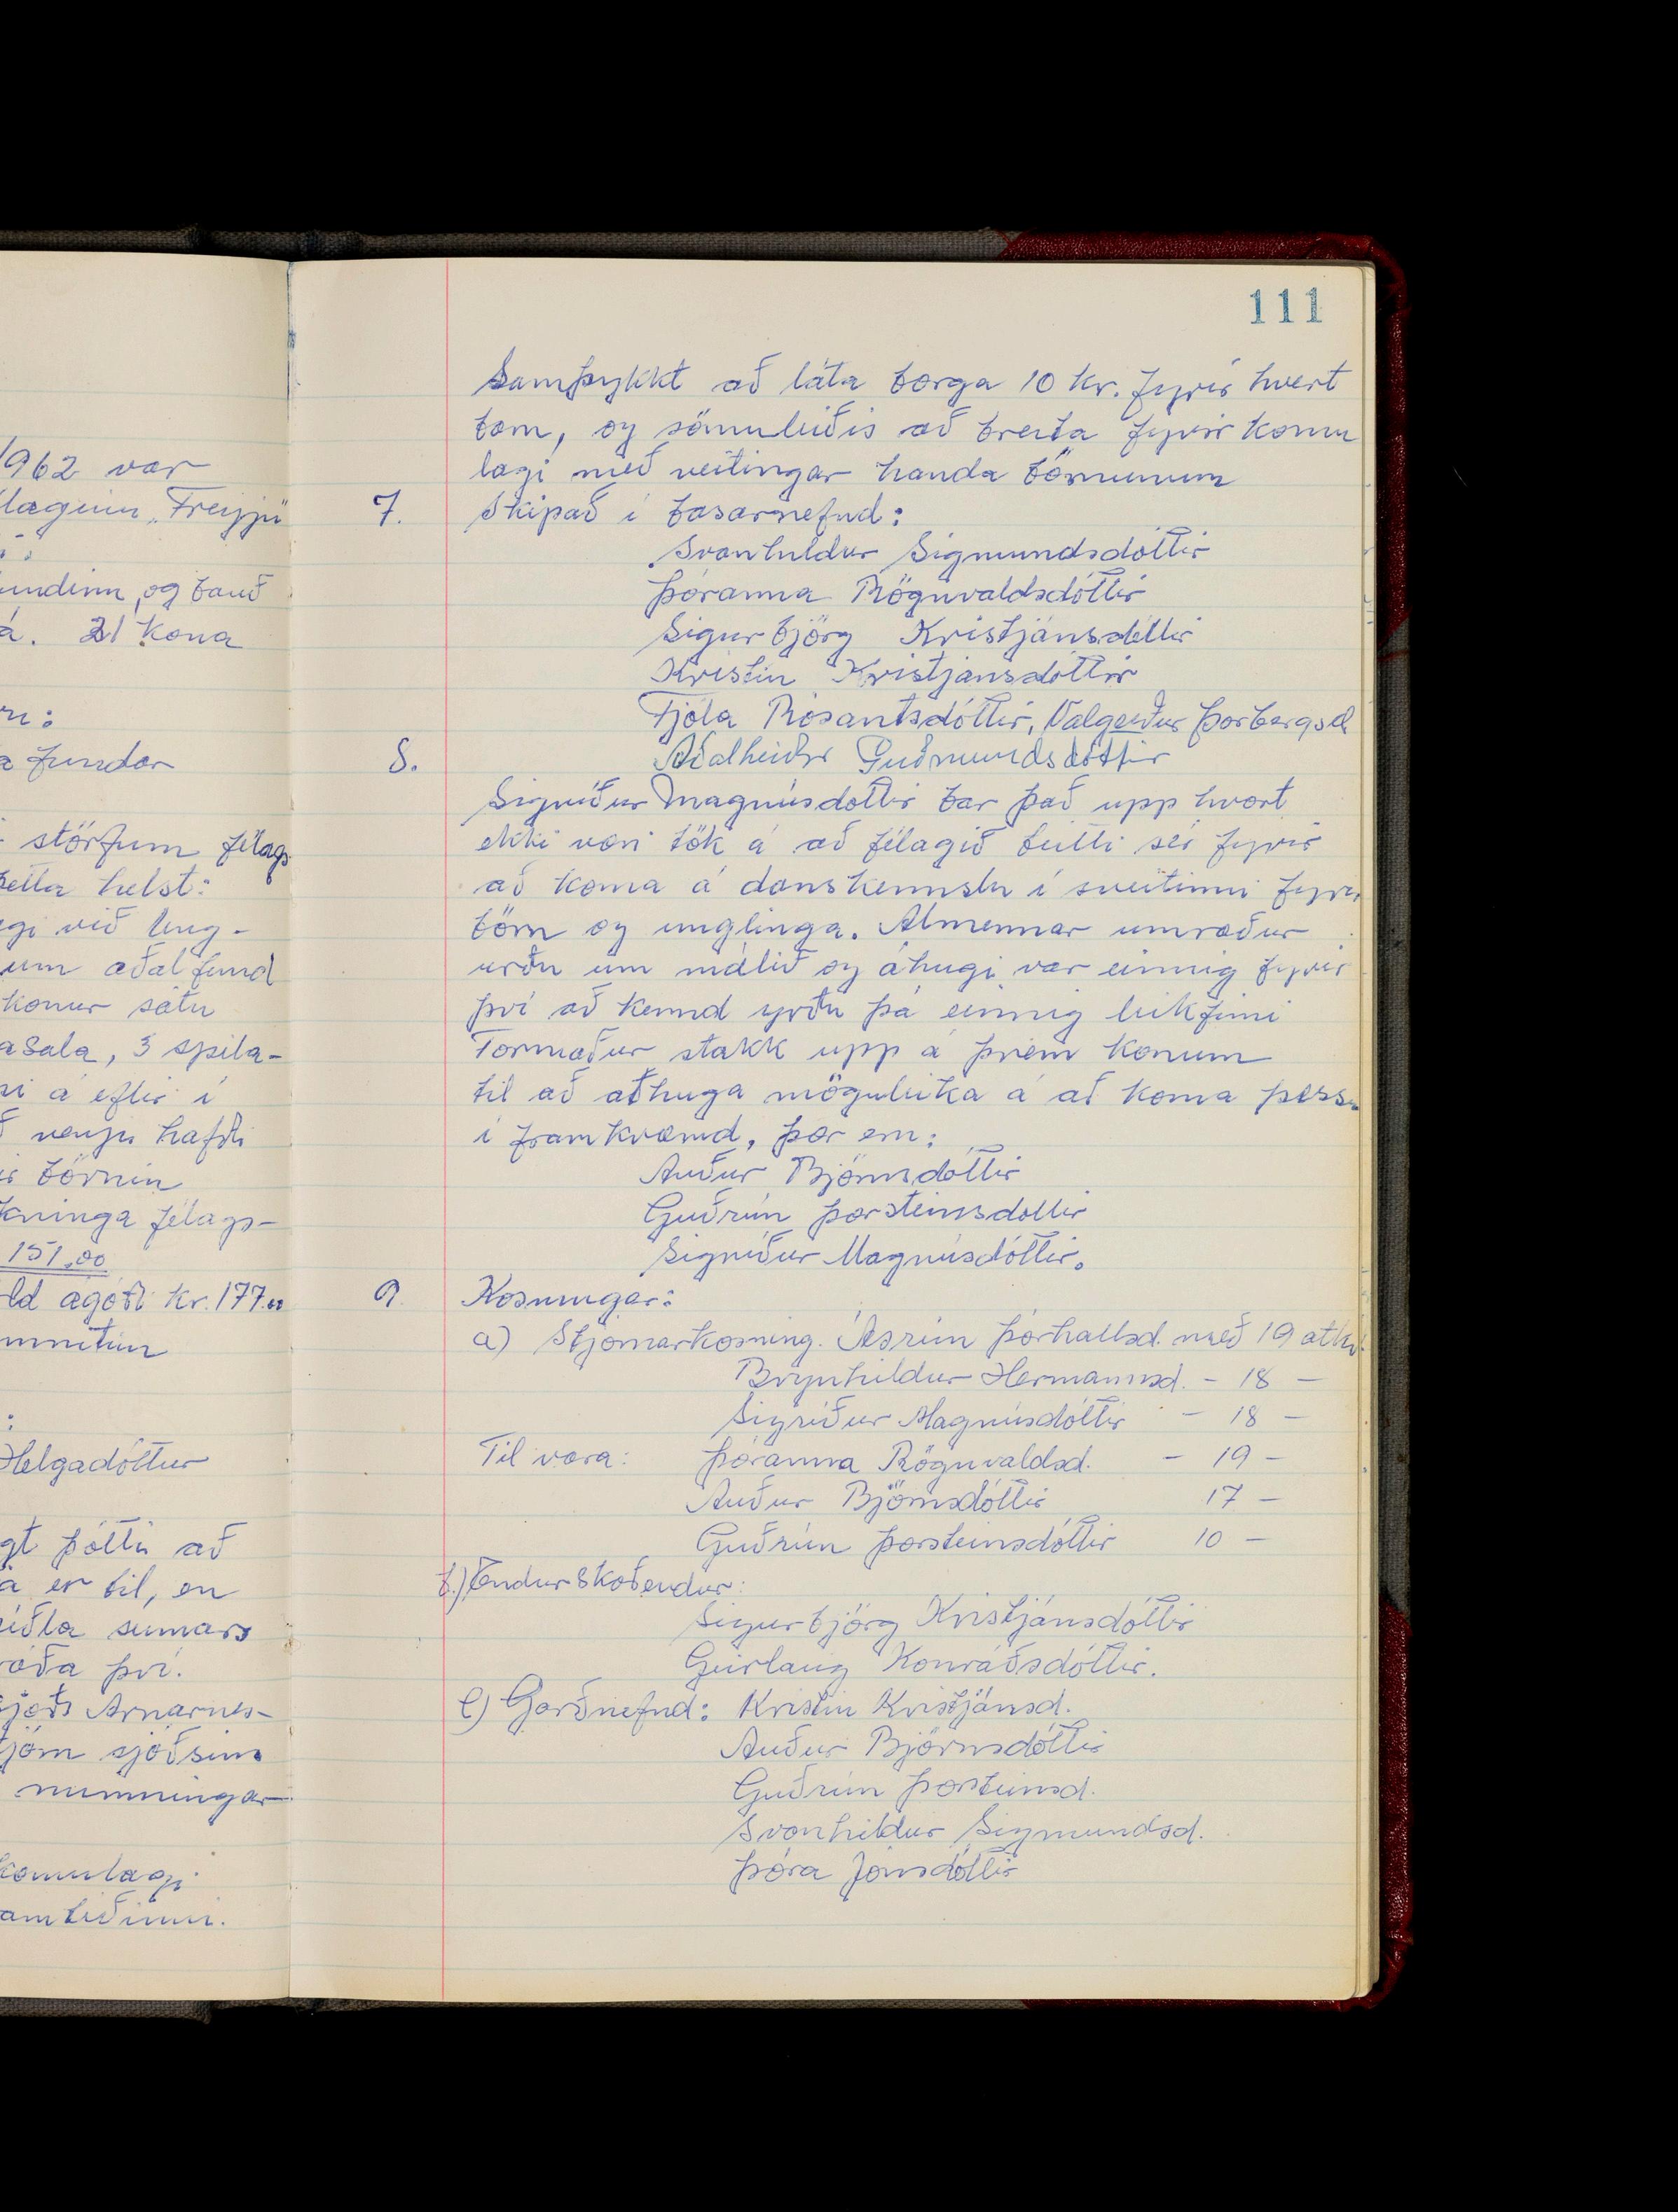 1962 var
laginn „Freyju
undinn, og bauð
á. 21 kona
a fundar
störfum félags
þetta helst:
gi við Ung-
um aðalfund
konur sátu
asala, 3 spila-
ni á eftir í
venju hafði
börnin
kninga félags-
151,00
ld ágóði kr. 177.00
Helgadóttur
gt þótti að
a er til, en
miðla sumars
Arnarnes-
sjóðsins
minningar
111
Samþykkt að láta borga 10 kr. fyrir hvert
barn, og sömuleiðis að breita fyrir komu
lagi með veitingar handa börnunum
7. Skipað í basarnefnd:
Svanhildur Sigmundsdóttir
Þóranna Rögnvaldsdóttir
Sigurbjörg Kristjánsdóttir
Kristín Kristjánsdóttir
Fjóla Rósantsdóttir, Valgerður Þorbergsd
8. Aðalheiður Guðmundsdóttir
Sigríður Magnúsdóttir bar það upp hvort
ekki væri tök á að félagið beitti sér fyrir
að koma á danskennslu í sveitinni fyrir
börn og unglinga. Almennar umræður
urðu um málið og áhugi var einnig fyrir
því að kennd yrðu þá einnig leikfimi
Formaður stakk upp á þrem konum
til að athuga möguleika á að koma þessu
í framkvæmd, þær eru:
Auður Björnsdóttir
Guðrún Þorsteinsdóttir
Sigríður Magnúsdóttir.
9. Kosningar:
a) Stjórnarkosning. Ásrún Þórhallsd. með 19 atkv.
Brynhildur Hermannsd. - 18 -
Sigríður Magnúsdóttir - 18 -
Til vara: Þóranna Rögnvaldsd. - 19 -
Auður Björnsdóttir 17 -
Guðrún Þorsteinsdóttir 10 -
b.) Endurskoðendur:
Sigurbjörg Kristjánsdóttir
Geirlaug Konráðsdóttir.
C) Garðnefnd: Kristín Kristjánsd.
Auður Björnsdóttir
Guðrún Þorsteinsd.
Svanhildur Sigmundsd.
Þóra Jónsdóttir